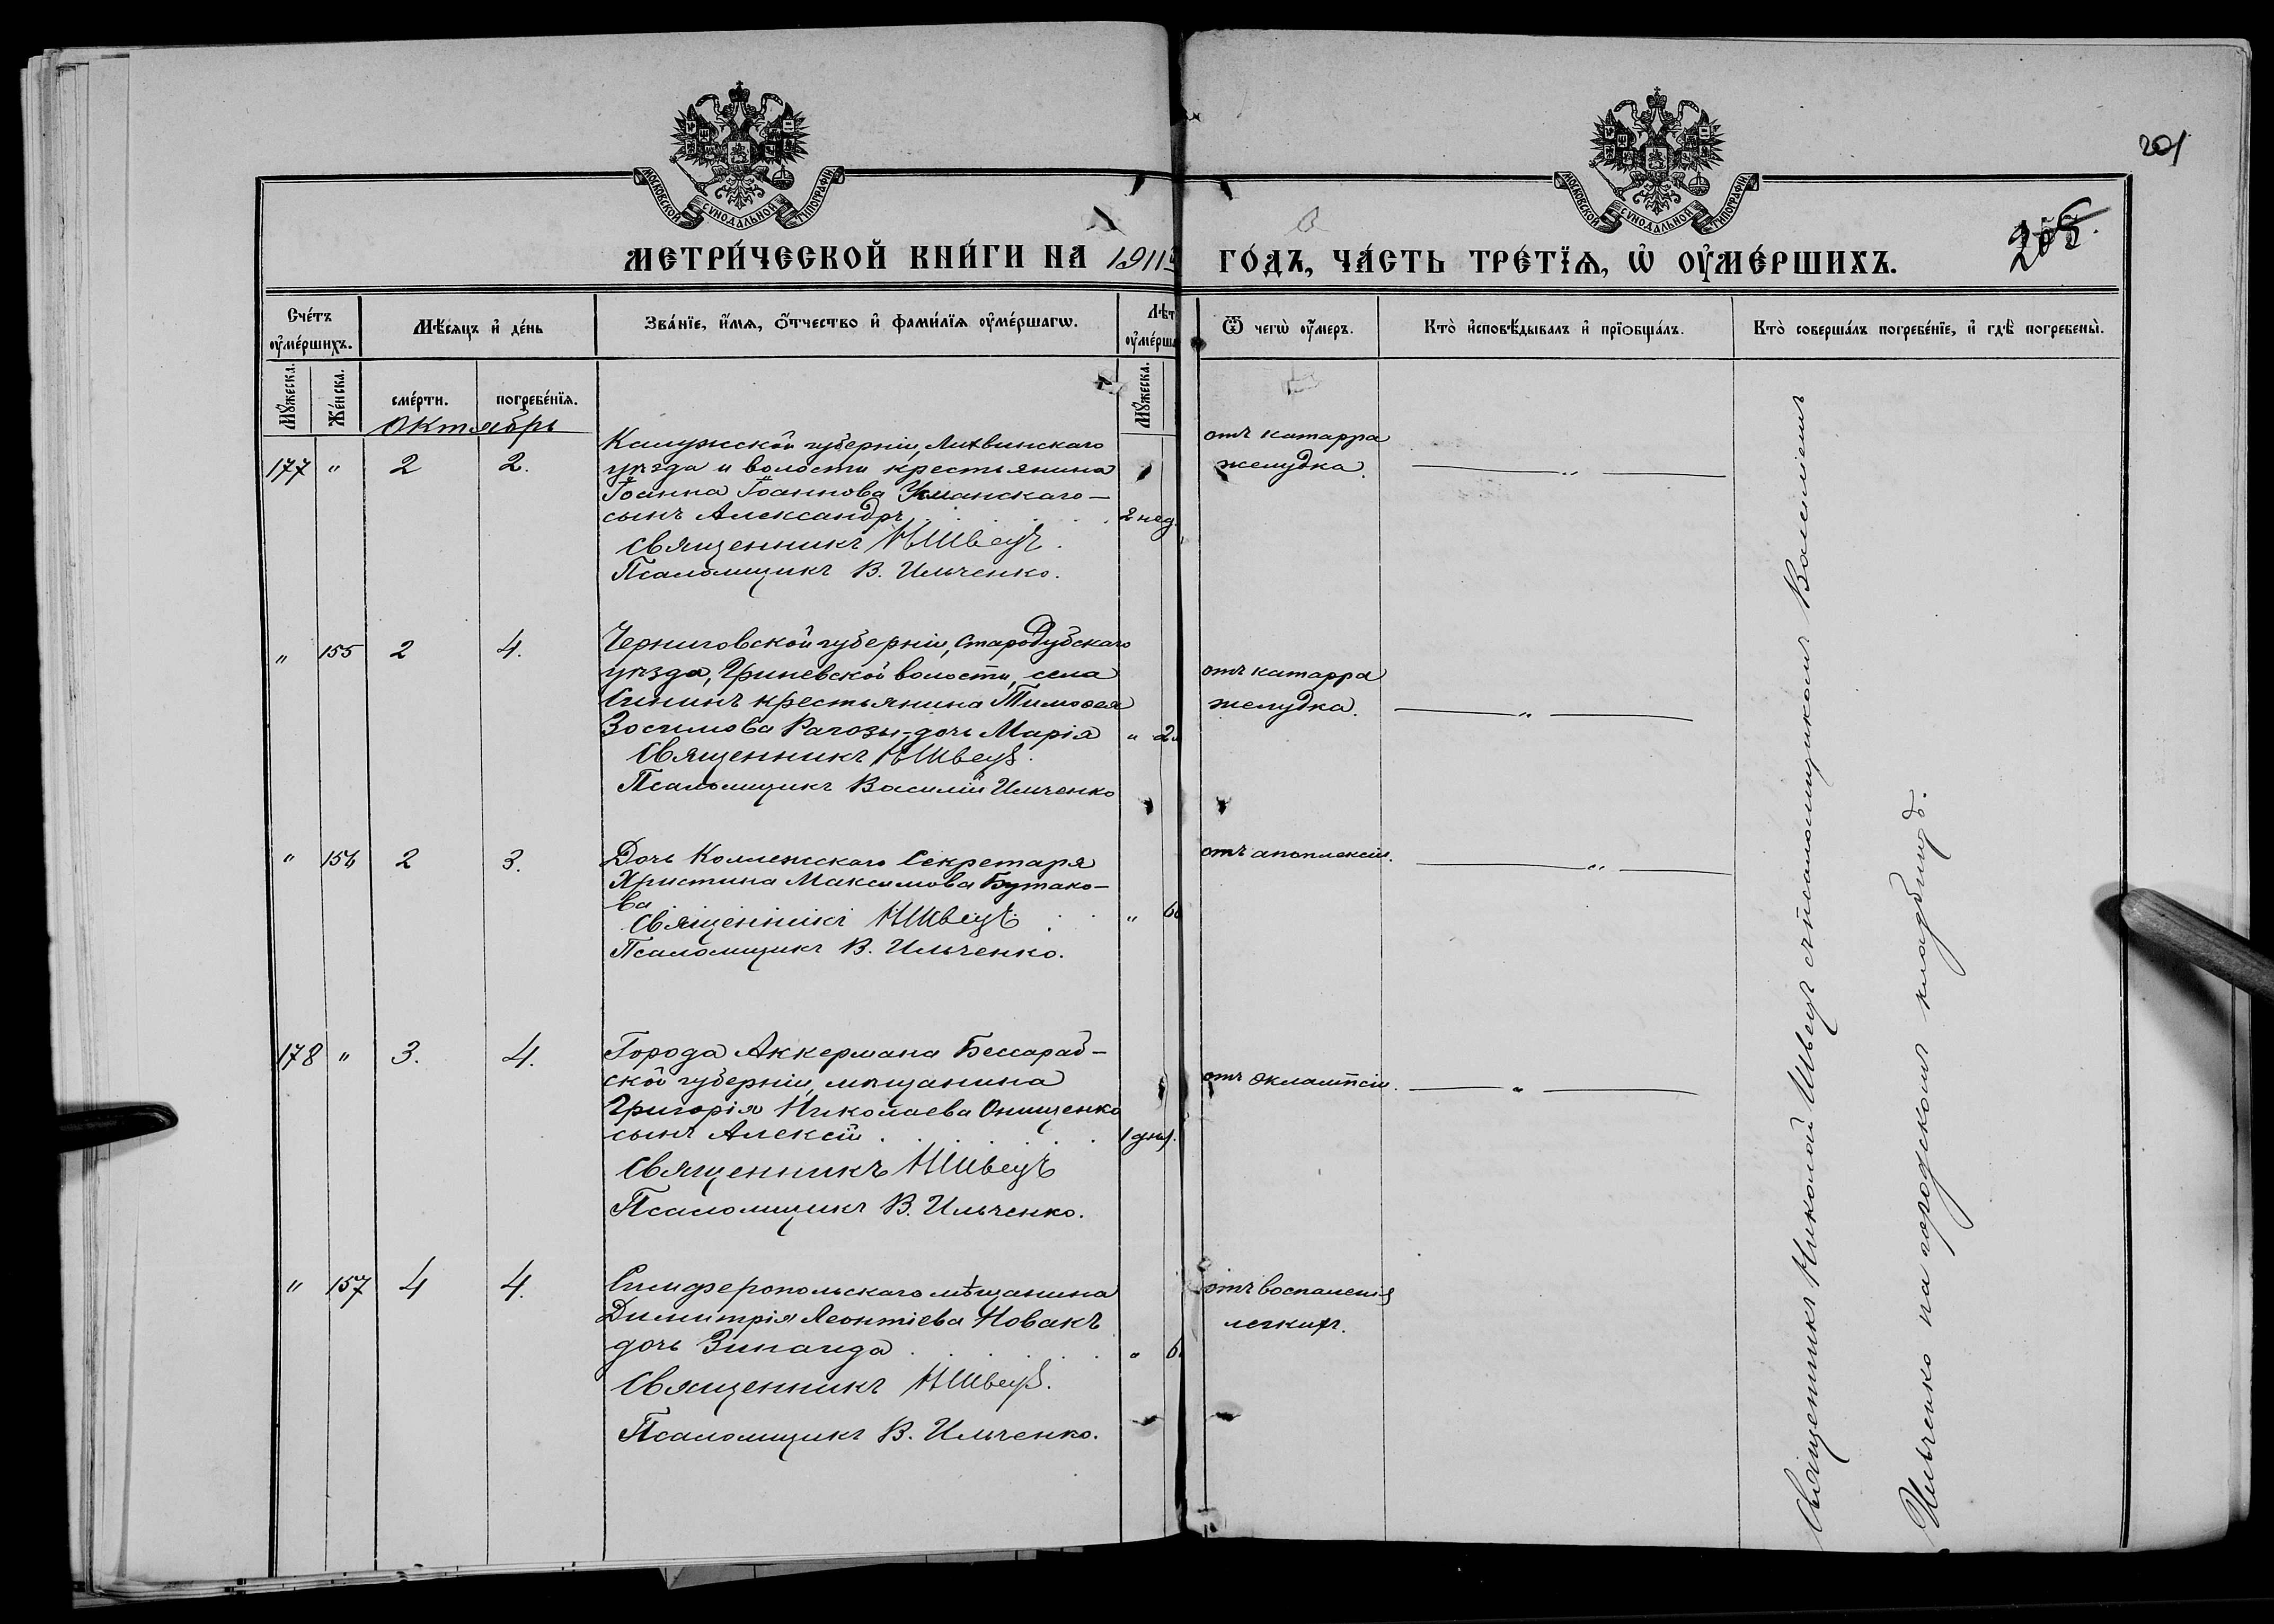 МОСКОВСКОЙ СУНОДАЛЬНОЙ ТИПОГРАФІИ
МЕТРИ́ЧЕСКОЙ КНИ́ГИ НА 1911й
Счетъ оумершихъ.
Мѣсяцъ и день
Званіе, имя, отчество и фамилія оумершагѡ.
Лѣт
оумерша
Мужеска.
Женска.
смерти.
погребенія.
Мужеска.
Октябрь
177 " 2 2.
Калужской губерніи, Лихвинскаго
уѣзда и волости крестьянина
Іоанна Іоаннова Уманскаго —
сынъ Александръ 2 нед.
Священникъ Н Швецъ.
Псаломщикъ В. Ильченко.
" 155 2 4.
Черниговской губерніи, Стародубскаго
уѣзда, Гриневской волости, села
Сининъ крестьянина Тимофея
Зосимова Рагозы - дочь Марія " 2
Священникъ Н Швецъ.
Псаломщикъ Василій Ильченко
" 156 2 3.
Дочь Коллежскаго Секретаря
Христина Максимова Бутако-
ва
Священникъ Н Швецъ. "
Псаломщикъ В. Ильченко.
178 " 3. 4.
Города Аккермана Бессараб-
ской губерніи, мѣщанина
Григорія Николаева Онищенко
сынъ Алексій 1 дня.
Священникъ Н Швецъ
Псаломщикъ В. Ильченко.
" 157 4 4.
Симферопольскаго мѣщанина
Димитрія Леонтіева Новакъ
дочь Зинаида " 6
Священникъ Н Швецъ.
Псаломщикъ В. Ильченко.
201
МОСКОВСКОЙ СУНОДАЛЬНОЙ ТИПОГРАФІИ
ГОДЪ, ЧАСТЬ ТРЕТІЯ, Ѡ ОУМЕРШИХЪ.
Ѿ чегѡ оумеръ.
Кто исповѣдывалъ и пріобщалъ.
Кто совершалъ погребеніе, и гдѣ погребены.
отъ катарра
желудка. — " —
отъ катарра
желудка. — " —
отъ апоплексіи. — " —
отъ эклампсіи. — " —
отъ воспаленія
легкихъ.
Священникъ Николай Швецъ съ псаломщикомъ Василіемъ
Ильченко на городскомъ кладбищѣ.